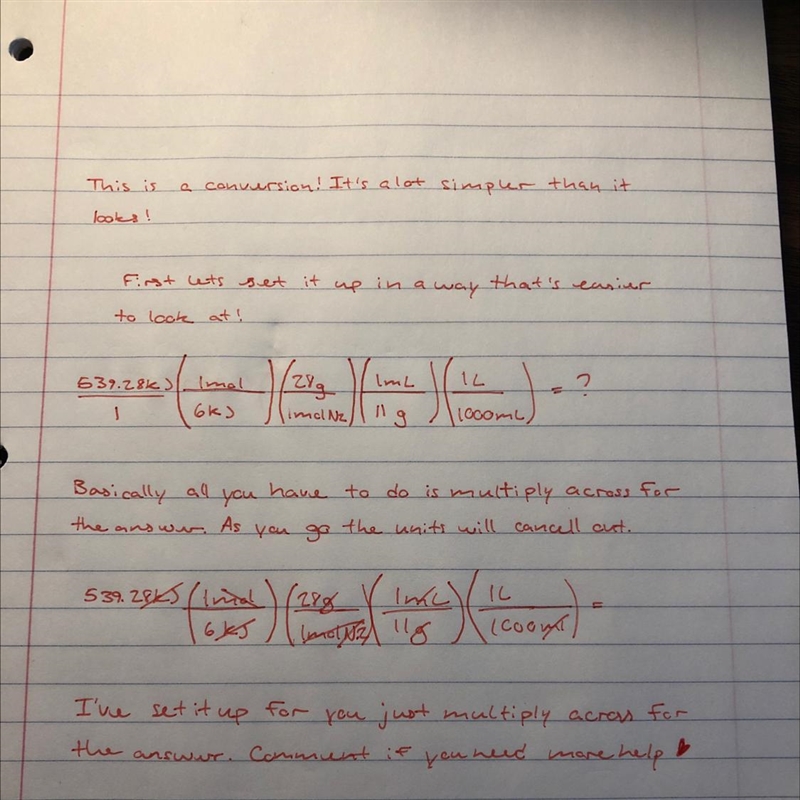 This is a conversion! It's alot simpler than it
looks!
First lets set it up in a way that's easier
to look at!
539.28kJ/1 (1mol/6kJ)(28g/1molN2)(1mL/11g)(1L/1000mL) = ?
Basically all you have to do is multiply across for
the answer. As you go the units will cancell out.
539.28kJ (1mol/6kJ)(28g/1molN2)(1mL/11g)(1L/1000ml) =
I've set it up for you just multiply across for
the answer. Comment if you need more help ♥